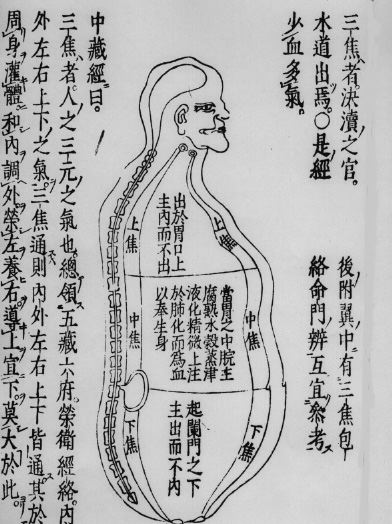 三焦者決瀆之官。
水道出焉。〇是經
少血多氣。
後附翼中有三焦包
絡命門辨互宜參考
上焦
出於胃口上
主內而不出
上焦
中焦
當胃之中脘主
腐熟水穀蒸津
液化精微上注
於肺化而為血
以奉生身
中焦
下焦
起闌門之下
主出而不內
下焦
中藏經曰。
三焦者人之三元之氣也。總領五藏六府榮衛經絡。內
外左右上下之氣。三焦通則內外左右上下皆通。其於
周身灌體和內調外榮左養右導上宜下莫大於此。